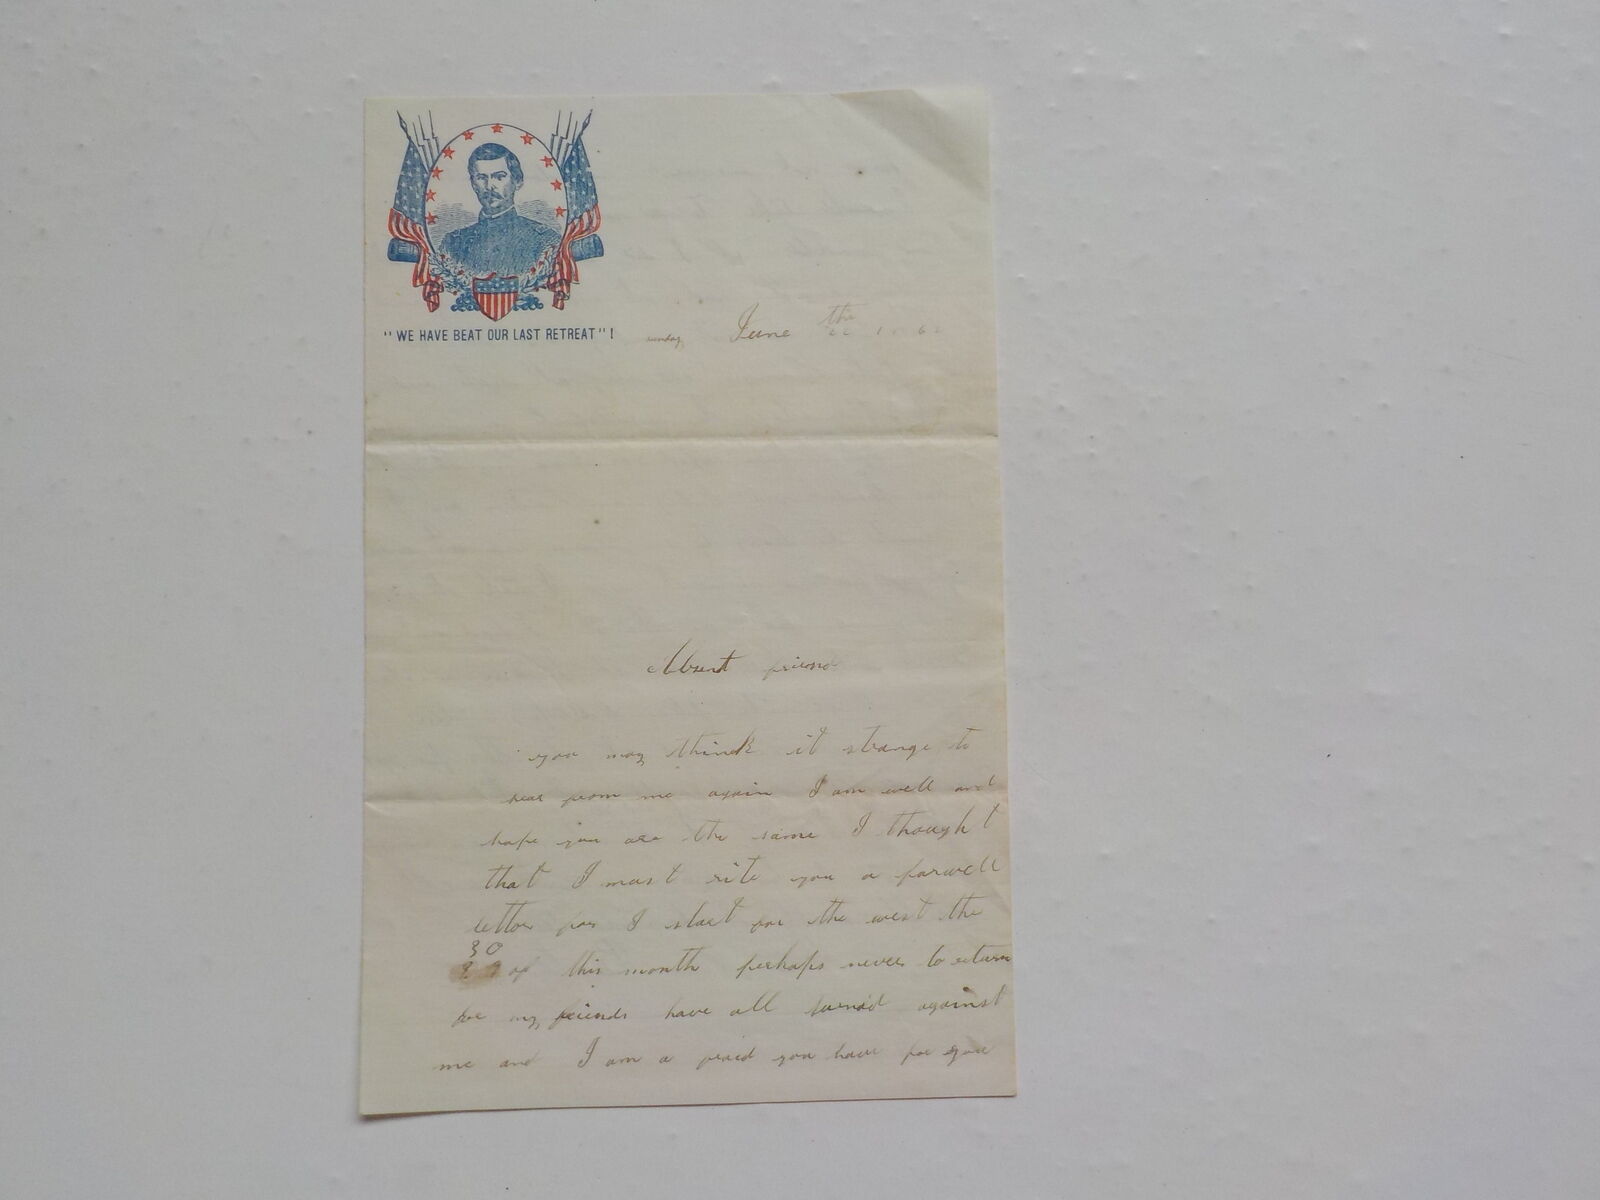 "WE HAVE BEAT OUR LAST RETREAT"!
sunday June 22 the 1862
Absent friend
you may think it strange to
hear from me again I am well and
hope you are the same I thought
that I must rite you a farwell
letter for I start for the west the
30
of this month perhaps never to return
for my friends have all turnd against
me and I am a fraid you have for you